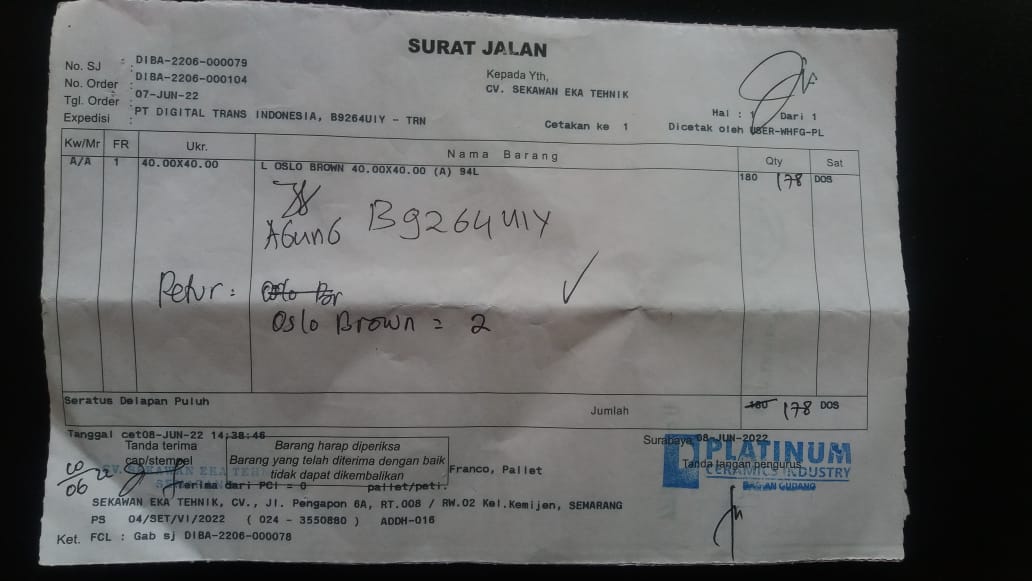 SURAT JALAN
No. SJ : DIBA-2206-000079
No. Order : DIBA-2206-000104
Tgl. Order : 07-JUN-22
Expedisi : PT DIGITAL TRANS INDONESIA, B9264UIY - TRN
Kepada Yth,
CV. SEKAWAN EKA TEHNIK
Cetakan ke 1
Hal : 1 Dari 1
Dicetak oleh USER-WHFG-PL
Kw/Mr FR Ukr. Nama Barang Qty Sat
A/A 1 40.00X40.00 L OSLO BROWN 40.00X40.00 (A) 94L 180 178 DOS
AGUNG B9264UIY
Retur :
Oslo Brown = 2
Seratus Delapan Puluh Jumlah 180 178 DOS
Tanggal cet08-JUN-22 14:38:46
Tanda terima
cap/stempel
Barang harap diperiksa
Barang yang telah diterima dengan baik
tidak dapat dikembalikan
Franco, Pallet
Surabaya 08-JUN-2022
PLATINUM
CERAMICS INDUSTRY
Tanda tangan pengurus
BAGIAN GUDANG
CV. SEKAWAN EKA
Terima dari PCI = 0 pallet/peti.
SEKAWAN EKA TEHNIK, CV., Jl. Pengapon 6A, RT.008 / RW.02 Kel.Kemijen, SEMARANG
PS 04/SET/VI/2022 ( 024 - 3550860 ) ADDH-016
Ket. FCL : Gab sj DIBA-2206-000078